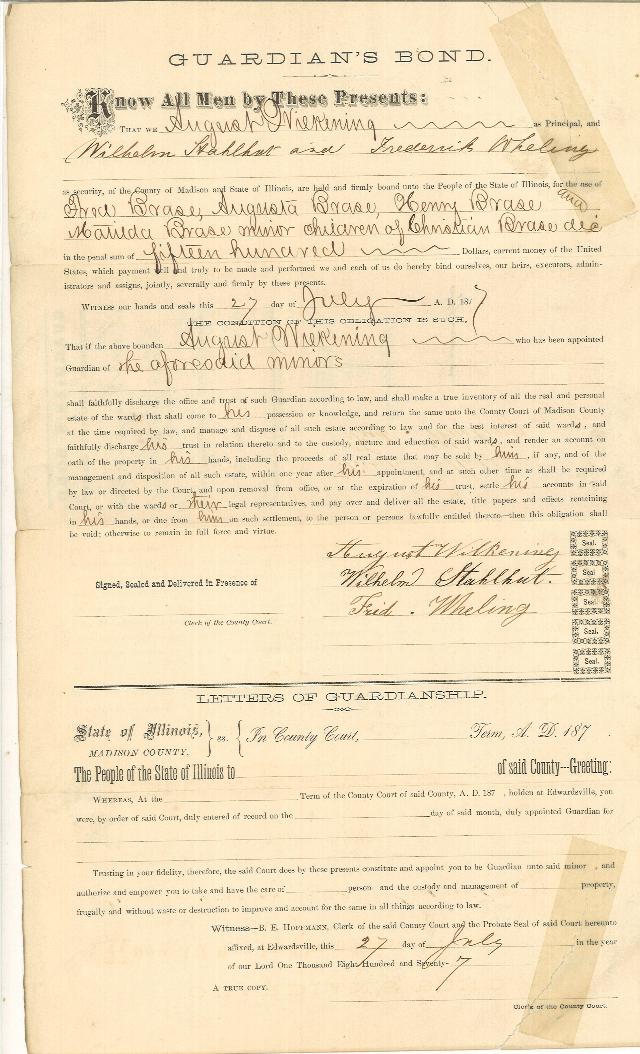 GUARDIAN'S BOND.
Know All Men by These Presents:
THAT WE August Wilkening as Principal, and
Wilhelm Stahlhut and Frederick Wheling
as security, of the County of Madison and State of Illinois, are held and firmly bound unto the People of the State of Illinois, for the use of
Fred Brase, Augusta Brase, Henry Brase and
Matilda Brase minor children of Christian Brase dec
in the penal sum of fifteen hundred Dollars, current money of the United
States, which payment well and truly to be made and performed we and each of us do hereby bind ourselves, our heirs, executors, admin-
istrators and assigns, jointly, severally and firmly by these presents.
WITNESS our hands and seals this 27 day of July A. D. 187 7
THE CONDITION OF THIS OBLIGATION IS SUCH,
That if the above bounden August Wilkening who has been appointed
Guardian of the aforesaid minors
shall faithfully discharge the office and trust of such Guardian according to law, and shall make a true inventory of all the real and personal
estate of the wards that shall come to his possession or knowledge, and return the same unto the County Court of Madison County
at the time required by law, and manage and dispose of all such estate according to law and for the best interest of said wards, and
faithfully discharge his trust in relation thereto and to the custody, nurture and education of said wards, and render an account on
oath of the property in his hands, including the proceeds of all real estate that may be sold by him, if any, and of the
management and disposition of all such estate, within one year after his appointment, and at such other time as shall be required
by law or directed by the Court, and upon removal from office, or at the expiration of his trust, settle his accounts in said
Court, or with the wards or their legal representatives, and pay over and deliver all the estate, title papers and effects remaining
in his hands, or due from him on such settlement, to the person or persons lawfully entitled thereto—then this obligation shall
be void; otherwise to remain in full force and virtue.
August Wilkening Seal.
Wilhelm Stahlhut Seal.
Signed, Sealed and Delivered in Presence of
Frid. Wheling Seal.
Clerk of the County Court.
Seal.
Seal.
LETTERS OF GUARDIANSHIP.
State of Illinois, MADISON COUNTY. } ss. { In County Court, Term, A. D. 187
The People of the State of Illinois to of said County---Greeting:
WHEREAS, At the Term of the County Court of said County, A. D. 187 , holden at Edwardsville, you
were, by order of said Court, duly entered of record on the day of said month, duly appointed Guardian for
Trusting in your fidelity, therefore, the said Court does by these presents constitute and appoint you to be Guardian unto said minor , and
authorize and empower you to take and have the care of person and the custody and management of property,
frugally and without waste or destruction to improve and account for the same in all things according to law.
Witness—B. E. HOFFMANN, Clerk of the said County Court and the Probate Seal of said Court hereunto
affixed, at Edwardsville, this 27 day of July in the year
of our Lord One Thousand Eight Hundred and Seventy- 7
A TRUE COPY.
Clerk of the County Court.